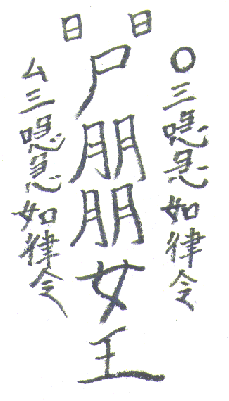 日
〇三喼急如律令
尸朋朋女王
日
ム三喼急如律令